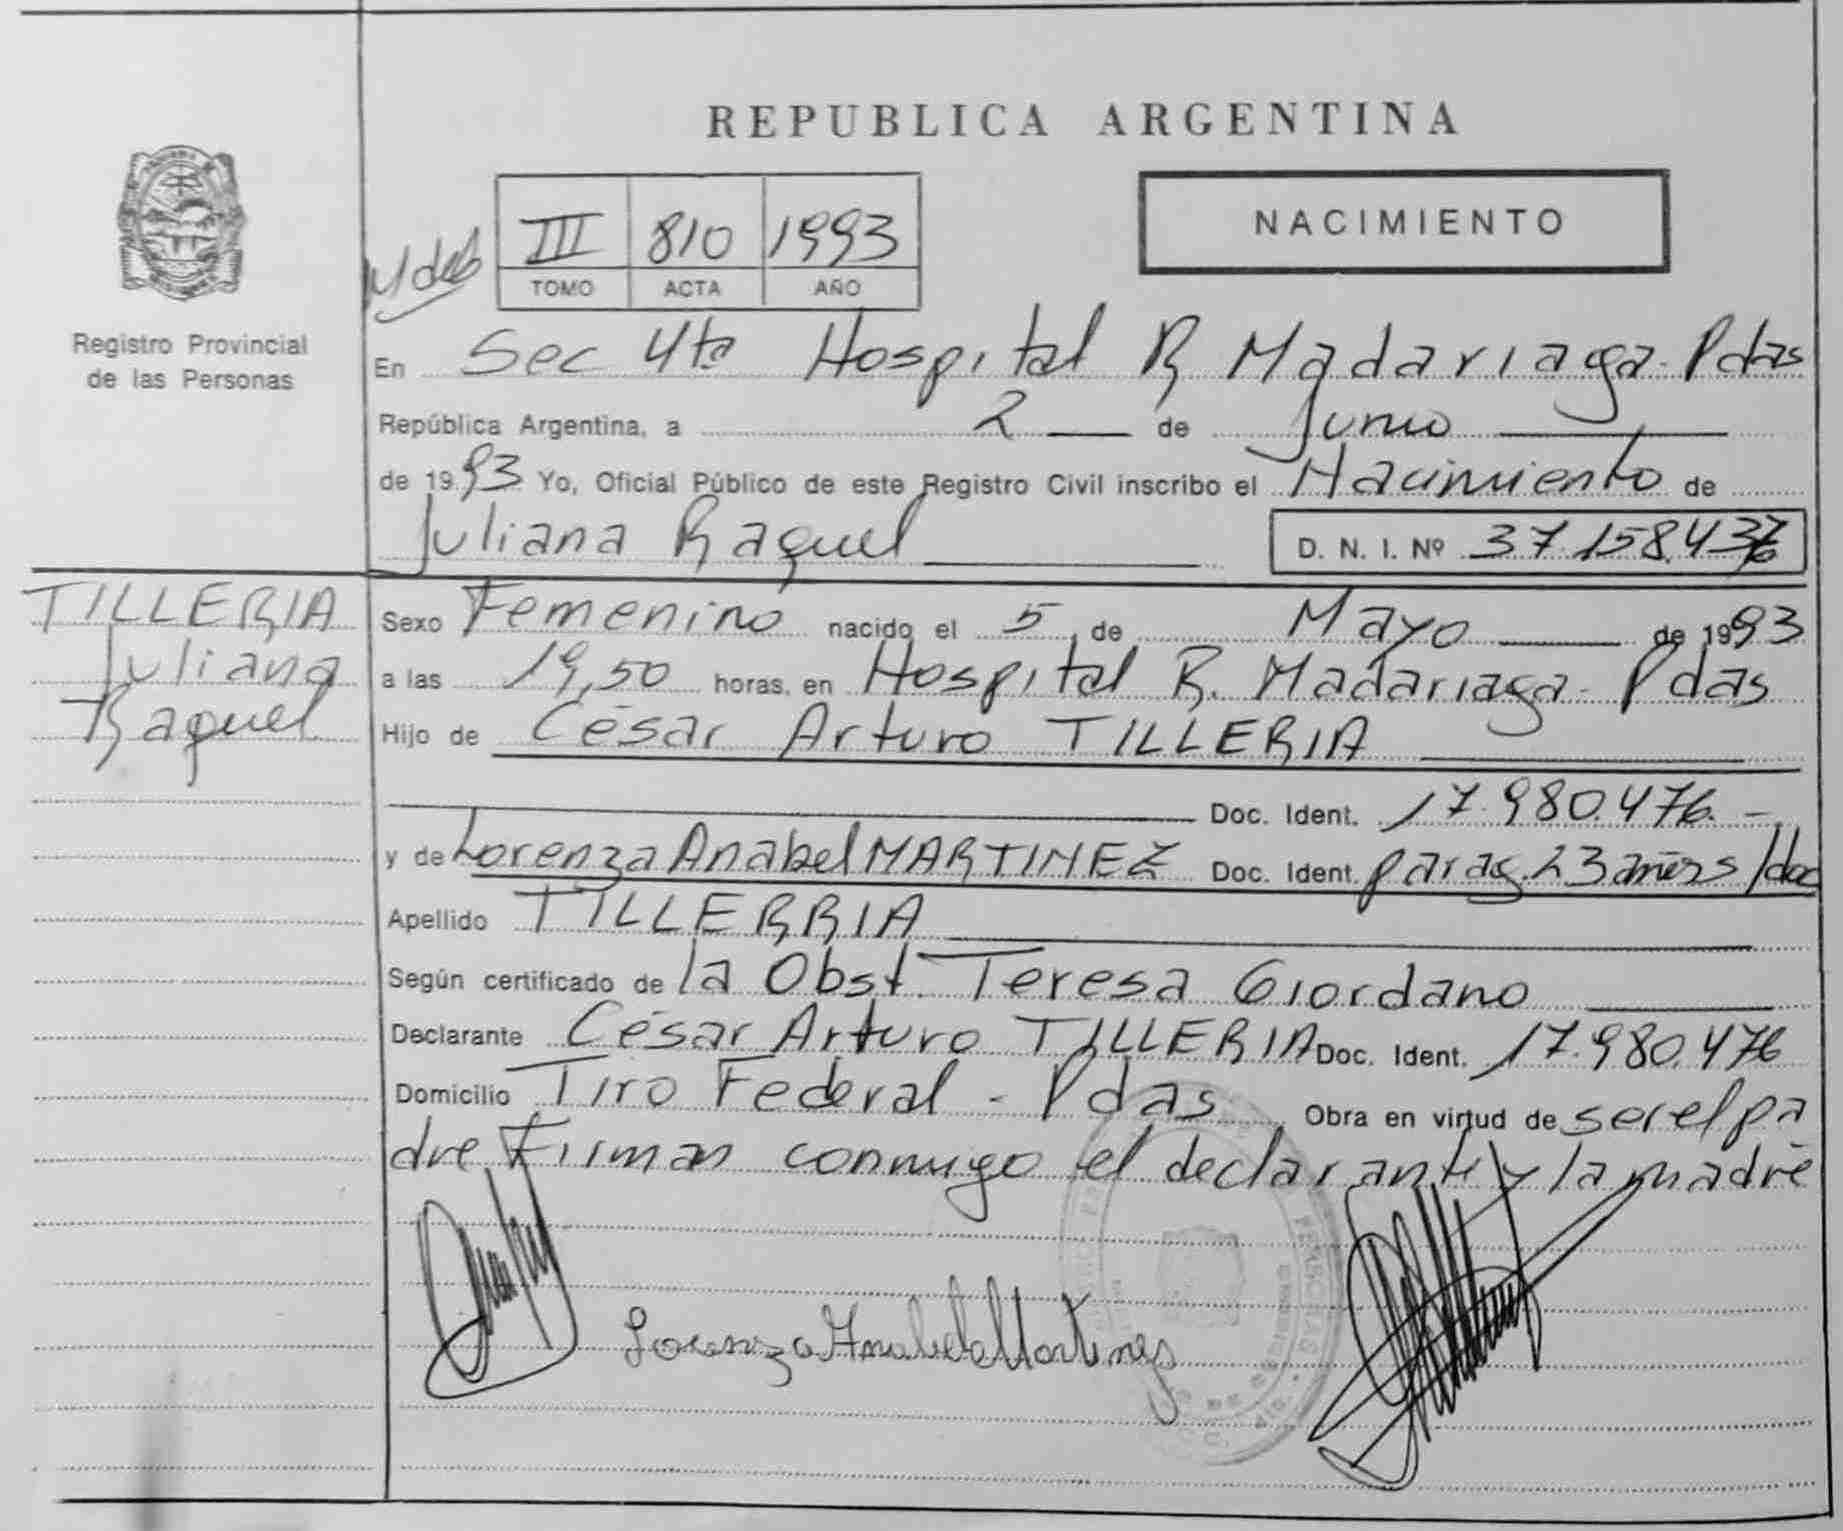 REPUBLICA ARGENTINA
NACIMIENTO
III 810 1993
TOMO ACTA AÑO
Registro Provincial
de las Personas
En Sec 4ta Hospital R Madariaga - Pdas
República Argentina, a 2 de Junio
de 1993 Yo, Oficial Público de este Registro Civil inscribo el Nacimiento de
Juliana Raquel D. N. I. Nº 37.158.43
TILLERIA
Juliana
Raquel
Sexo Femenino nacido el 5 de Mayo de 1993
a las 19,50 horas, en Hospital R. Madariaga - Pdas
Hijo de César Arturo TILLERIA
Doc. Ident. 17.980.476.-
y de Lorenza Anabel MARTINEZ Doc. Ident. parag. 23 años /doc
Apellido TILLERRIA
Según certificado de la Obst. Teresa Giordano
Declarante César Arturo TILLERIA Doc. Ident. 17.980.476
Domicilio Tiro Federal - Pdas Obra en virtud de ser el pa
dre Firman conmigo el declarante y la madre
Lorenza Anabel Martinez